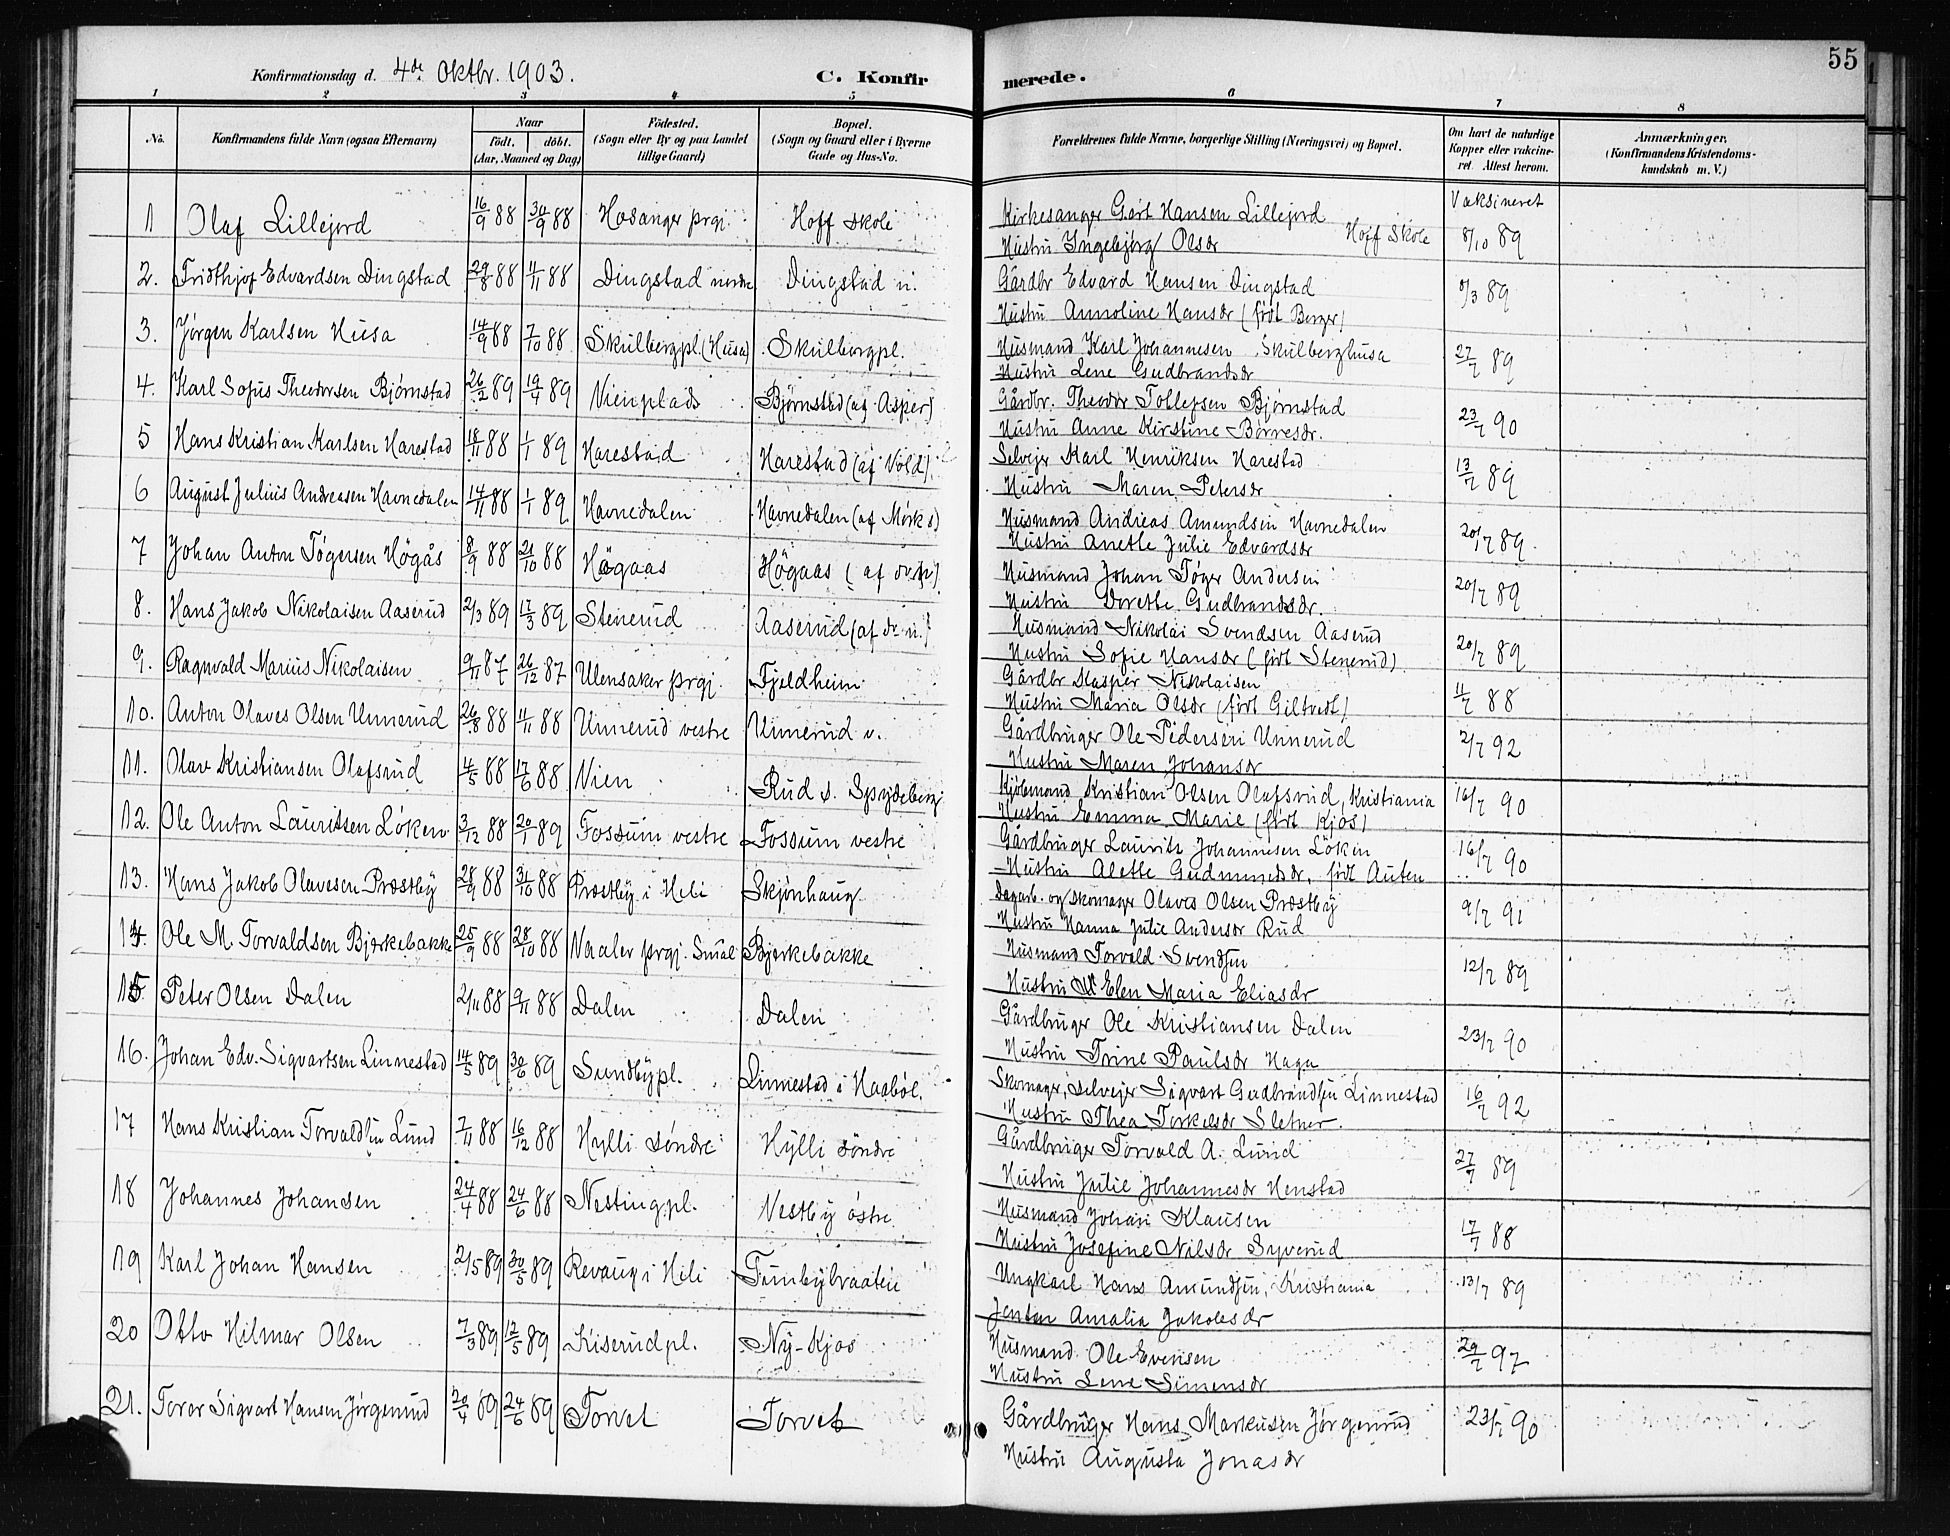 Konfirmationsdag d. 4de Oktbr. 1903.
C. Konfirmerede.
55
1 2 3 4 5 6 7 8
No.
Konfirmandens fulde Navn (ogsaa Efternavn)
Naar
födt. döbt.
(Aar, Maaned og Dag)
Födested.
(Sogn eller By og paa Landet
tillige Gaard)
Bopæl.
(Sogn og Gaard eller i Byerne
Gade og Hus-No.
Forældrenes fulde Navne, borgerlige Stilling (Næringsvei) og Bopæl.
Om havt de naturlige
Kopper eller vakcine-
ret. Attest herom.
Anmærkninger,
(Konfirmandens Kristendoms-
kundskab m. V.)
1 Olaf Lillejord 16/9 88 30/9 88 Hosanger prgj. Hoff skole
Kirkesanger Gert Hansen Lillejord
Hustru Ingebjörg Olsdr Hoff Skole
Vaksineret
8/10 89
2. Fridthjof Edvardsen Dingstad 29/8 88 4/11 88 Dingstad nordre Dingstad n.
Gårdbr Edvard Hansen Dingstad
Hustru Annoline Hansdr (født Berger) 8/3 89
3. Jørgen Karlsen Husa 14/9 88 7/10 88 Skulbergpl. (Husa) Skulbergpl.
Husmand Karl Johannesen Skulberghusa
Hustru Lene Gudbrandsdr 27/7 89
4. Karl Sofus Theodorsen Bjørnstad 26/2 89 19/4 89 Vienplads Bjørnstad (af Asper)
Gårdbr. Theodor Tollefsen Bjørnstad
Hustru Anne Kirstine Börresdr. 23/7 90
5 Hans Kristian Karlsen Harestad 18/11 88 1/1 89 Harestad Harestad (af Vold)
Selvejer Karl Henriksen Harestad
Hustru Maren Petersdr 13/7 89
6 August Julius Andreasen Havnedalen 14/11 88 1/1 89 Havnedalen Havnedalen (af Mørk s)
Husmand Andreas Amundsen Havnedalen
Hustru Anette Julie Edvardsdr 20/7 89
7 Johan Anton Tögersen Högås 8/9 88 21/10 88 Högaas Högaas
Husmand Johan Töger Andersen
Hustru Dorette Gudbrandsdr. 20/7 89
8. Hans Jakob Nikolaisen Aaserud 2/3 89 17/3 89 Stenerud Aaserud
Husmand Nikolai Svendsen Aaserud
Hustru Sofie Hansdr (født Stenerud) 20/7 89
9. Ragnvald Marius Nikolaisen 9/11 87 26/12 87 Ulensaker prgj. Fjeldheim
Gårdbr Kasper Nikolaisen
Hustru Maria Olsdr (født Giltvedt) 11/7 88
10. Anton Olaves Olsen Unnerud 26/8 88 4/11 88 Unnerud vestre Unnerud v.
Gårdbruger Ole Pedersen Unnerud
Hustru Maren Johansdr 2/7 92
11. Olav Kristiansen Olafsrud 4/5 88 17/6 88 Vien Rud s. Spydeberg
Kjölmand Kristian Olsen Olafsrud, Kristiania
Hustru Emma Marie (født Kjos) 16/7 90
12. Ole Anton Lauritsen Löken 3/12 88 20/1 89 Fossum vestre Fossum vestre
Gårdbruger Laurits Johannesen Löken
Hustru Alette Gudmundsdr, født Auten 16/7 90
13. Hans Jakob Olavesen Præstby 28/9 88 31/10 88 Præstby i Heli Skjönhaug
Dagarb. og skomager Olaves Olsen Præstby
Hustru Hanna Julie Andersdr Rud 9/7 91
14 Ole M. Torvaldsen Bjerkebakke 25/9 88 28/10 88 Vaaler prgj. Smål Bjerkebakke
Husmand Torvald Svendsen
Hustru Elen Maria Eliasdr 12/7 89
15 Peter Olsen Dalen 2/11 88 9/11 88 Dalen Dalen
Gårdbruger Ole Kristiansen Dalen
Hustru Trine Paulsdr Haga 23/7 90
16. Johan Edv. Sigvartsen Linnestad 14/5 89 30/6 89 Sundbypl. Linnestad i Haaböl.
Skomager, selvejer Sigvart Gudbrandsen Linnestad
Hustru Thea Torkelsdr Sletner 16/7 92
17 Hans Kristian Torvaldsen Lund 7/11 88 16/12 88 Hylli söndre Hylli söndre
Gårdbruger Torvald A. Lund
Hustru Julie Johannesdr Henstad 27/7 89
18 Johannes Johansen 24/4 88 24/6 88 Nestingpl. Vestby östre
Husmand Johan Klausen
Hustru Josefine Nilsdr Syverud 17/7 88
19 Karl Johan Hansen 2/5 89 30/5 89 Revaug i Heli Finnbybraaten
Ungkarl Hans Amundsen, Kristiania
Jenten Amalia Jakobsdr 13/7 89
20 Otto Hilmar Olsen 7/3 89 12/5 89 Kiserudpl. Ny-Kjos
Husmand Ole Evensen
Hustru Lene Simensdr 29/7 97
21. Toror Sigvart Hansen Jörgenrud 20/4 89 24/6 89 Torvet Torvet
Gårdbruger Hans Markusen Jörgenrud
Hustru Augusta Jonasdr 23/7 90